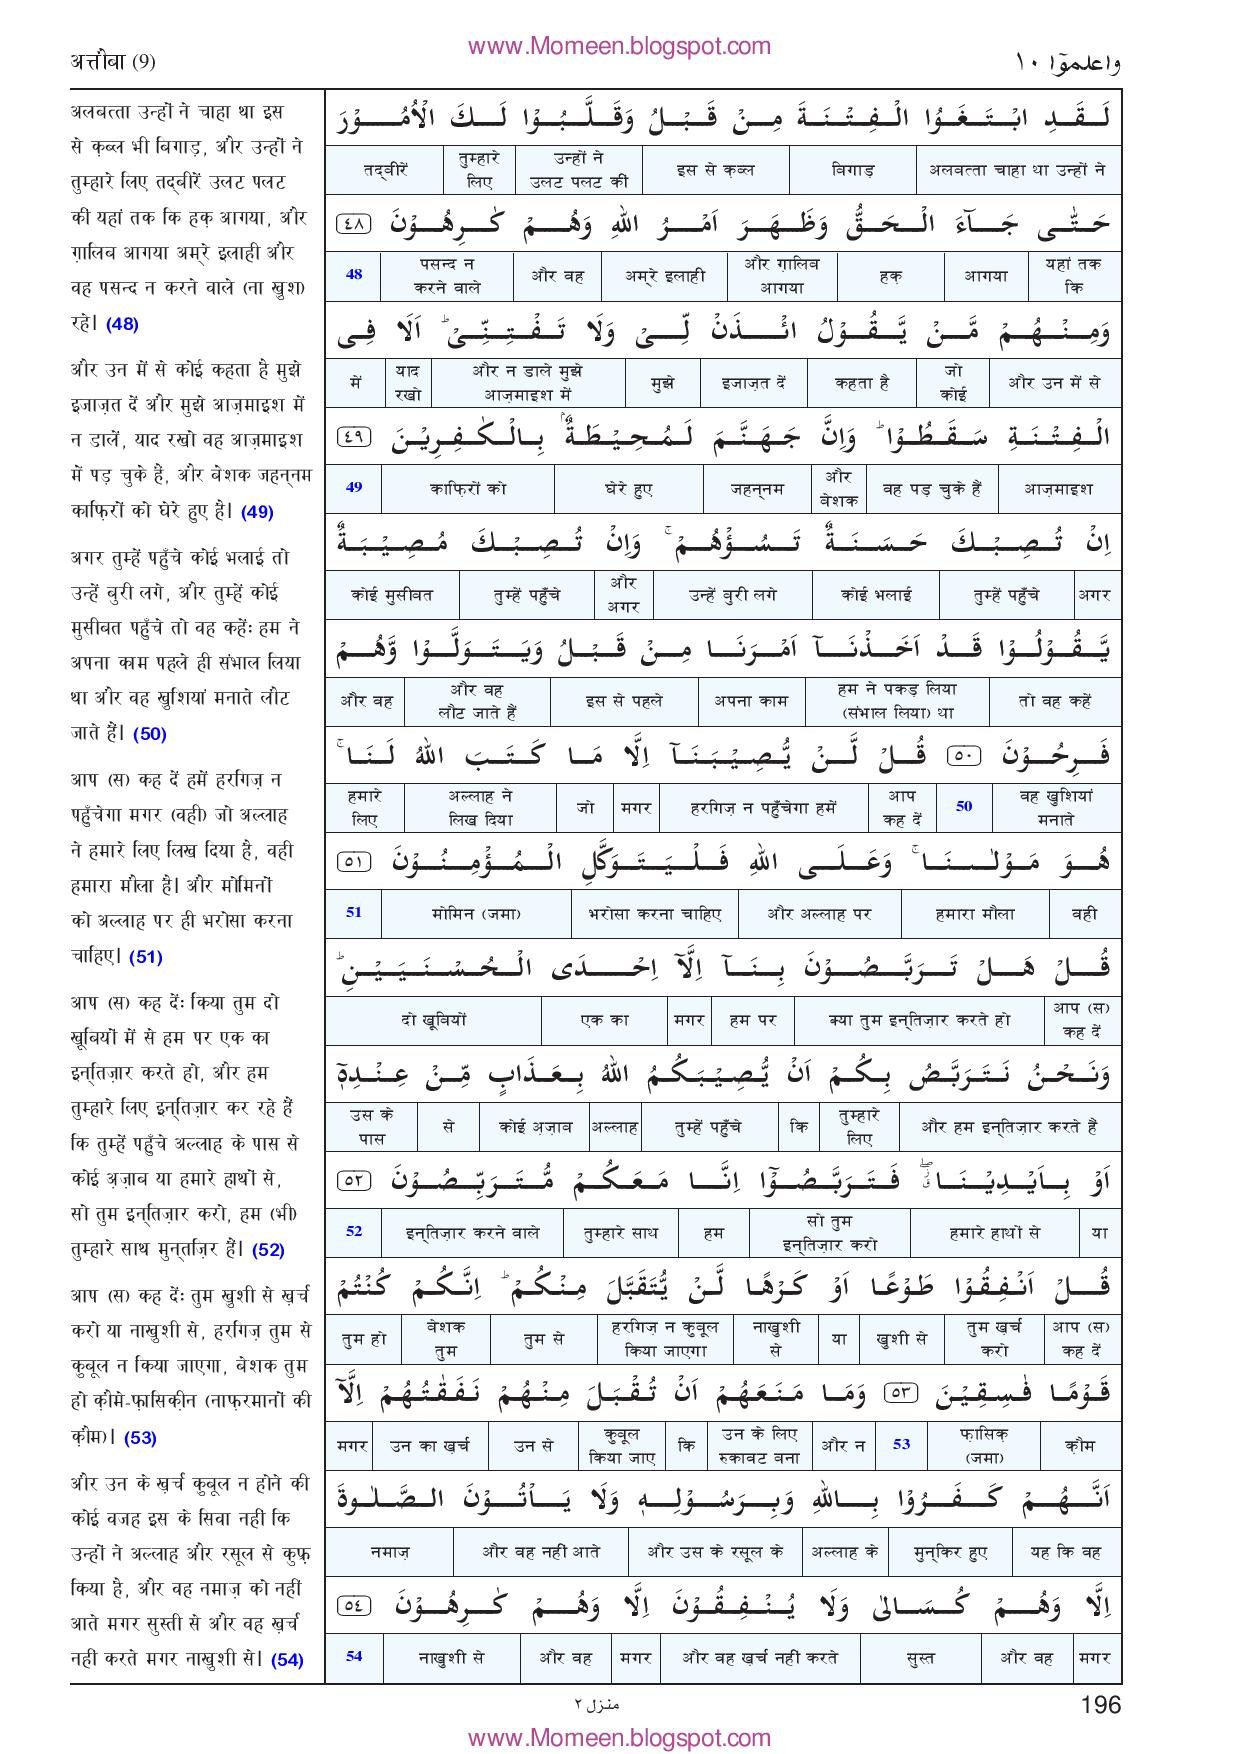 www.Momeen.blogspot.com
अत्तौबा (9)
واعلموۤا ١٠
अलबत्ता उन्हों ने चाहा था इस
से क़ब्ल भी बिगाड़, और उन्हों ने
तुम्हारे लिए तद्बीरें उलट पलट
कीं यहां तक कि हक़ आगया, और
ग़ालिब आगया अम्रे इलाही और
वह पसन्द न करने वाले (ना खुश)
रहे। (48)
और उन में से कोई कहता है मुझे
इजाज़त दें और मुझे आज़माइश में
न डालें, याद रखो वह आज़माइश
में पड़ चुके हैं, और बेशक जहन्नम
काफ़िरों को घेरे हुए है। (49)
अगर तुम्हें पहुँचे कोई भलाई तो
उन्हें बुरी लगे, और तुम्हें कोई
मुसीबत पहुँचे तो वह कहेंः हम ने
अपना काम पहले ही संभाल लिया
था और वह खुशियां मनाते लौट
जाते हैं। (50)
आप (स) कह दें हमें हरगिज़ न
पहुँचेगा मगर (वही) जो अल्लाह
ने हमारे लिए लिख दिया है, वही
हमारा मौला है। और मोमिनों
को अल्लाह पर ही भरोसा करना
चाहिए। (51)
आप (स) कह देंः किया तुम दो
खूबियों में से हम पर एक का
इन्तिज़ार करते हो, और हम
तुम्हारे लिए इन्तिज़ार कर रहे हैं
कि तुम्हें पहुँचे अल्लाह के पास से
कोई अज़ाब या हमारे हाथों से,
सो तुम इन्तिज़ार करो, हम (भी)
तुम्हारे साथ मुन्तज़िर हैं। (52)
आप (स) कह देंः तुम खुशी से ख़र्च
करो या नाखुशी से, हरगिज़ तुम से
कुबूल न किया जाएगा, बेशक तुम
हो क़ौमे-फ़ासिक़ीन (नाफ़रमानों की
क़ौम)। (53)
और उन के ख़र्च कुबूल न होने की
कोई वजह इस के सिवा नहीं कि
उन्हों ने अल्लाह और रसूल से कुफ़्र
किया है, और वह नमाज़ को नहीं
आते मगर सुस्ती से और वह ख़र्च
नहीं करते मगर नाखुशी से। (54)
لَقَدِ ابْتَغَوُا الْفِتْنَةَ مِنْ قَبْلُ وَقَلَّبُوْا لَكَ الْاُمُوْرَ
अलबत्ता चाहा था उन्हों ने | बिगाड़ | इस से क़ब्ल | उन्हों ने उलट पलट कीं | तुम्हारे लिए | तद्बीरें
حَتّٰى جَآءَ الْحَقُّ وَظَهَرَ اَمْرُ اللهِ وَهُمْ كٰرِهُوْنَ ٤٨
यहां तक कि | आगया | हक़ | और ग़ालिब आगया | अम्रे इलाही | और वह | पसन्द न करने वाले | 48
وَمِنْهُمْ مَّنْ يَّقُوْلُ ائْذَنْ لِّيْ وَلَا تَفْتِنِّيْ ؕ اَلَا فِى
और उन में से | जो कोई | कहता है | इजाज़त दें | मुझे | और न डाले मुझे आज़माइश में | याद रखो | में
الْفِتْنَةِ سَقَطُوْا ؕ وَاِنَّ جَهَنَّمَ لَمُحِيْطَةٌۢ بِالْكٰفِرِيْنَ ٤٩
आज़माइश | वह पड़ चुके हैं | और बेशक | जहन्नम | घेरे हुए | काफ़िरों को | 49
اِنْ تُصِبْكَ حَسَنَةٌ تَسُؤْهُمْ ۚ وَاِنْ تُصِبْكَ مُصِيْبَةٌ
अगर | तुम्हें पहुँचे | कोई भलाई | उन्हें बुरी लगे | और अगर | तुम्हें पहुँचे | कोई मुसीबत
يَّقُوْلُوْا قَدْ اَخَذْنَآ اَمْرَنَا مِنْ قَبْلُ وَيَتَوَلَّوْا وَّهُمْ
तो वह कहें | हम ने पकड़ लिया (संभाल लिया) था | अपना काम | इस से पहले | और वह लौट जाते हैं | और वह
فَرِحُوْنَ ٥٠ قُلْ لَّنْ يُّصِيْبَنَآ اِلَّا مَا كَتَبَ اللهُ لَنَا ۚ
वह खुशियां मनाते | 50 | आप कह दें | हरगिज़ न पहुँचेगा हमें | मगर | जो | अल्लाह ने लिख दिया | हमारे लिए
هُوَ مَوْلٰىنَا ۚ وَعَلَى اللهِ فَلْيَتَوَكَّلِ الْمُؤْمِنُوْنَ ٥١
वही | हमारा मौला | और अल्लाह पर | भरोसा करना चाहिए | मोमिन (जमा) | 51
قُلْ هَلْ تَرَبَّصُوْنَ بِنَآ اِلَّآ اِحْدَى الْحُسْنَيَيْنِ ؕ
आप (स) कह दें | क्या तुम इन्तिज़ार करते हो | हम पर | मगर | एक का | दो खूबियों
وَنَحْنُ نَتَرَبَّصُ بِكُمْ اَنْ يُّصِيْبَكُمُ اللهُ بِعَذَابٍ مِّنْ عِنْدِهٖٓ
और हम इन्तिज़ार करते हैं | तुम्हारे लिए | कि | तुम्हें पहुँचे | अल्लाह | कोई अज़ाब | से | उस के पास
اَوْ بِاَيْدِيْنَا ۖ فَتَرَبَّصُوْٓا اِنَّا مَعَكُمْ مُّتَرَبِّصُوْنَ ٥٢
या | हमारे हाथों से | सो तुम इन्तिज़ार करो | हम | तुम्हारे साथ | इन्तिज़ार करने वाले | 52
قُلْ اَنْفِقُوْا طَوْعًا اَوْ كَرْهًا لَّنْ يُّتَقَبَّلَ مِنْكُمْ ؕ اِنَّكُمْ كُنْتُمْ
आप (स) कह दें | तुम ख़र्च करो | खुशी से | या | नाखुशी से | हरगिज़ न कुबूल किया जाएगा | तुम से | बेशक तुम | तुम हो
قَوْمًا فٰسِقِيْنَ ٥٣ وَمَا مَنَعَهُمْ اَنْ تُقْبَلَ مِنْهُمْ نَفَقٰتُهُمْ اِلَّآ
क़ौम | फ़ासिक़ (जमा) | 53 | और न | उन के लिए रुकावट बना | कि | कुबूल किया जाए | उन से | उन का ख़र्च | मगर
اَنَّهُمْ كَفَرُوْا بِاللهِ وَبِرَسُوْلِهٖ وَلَا يَاْتُوْنَ الصَّلٰوةَ
यह कि वह | मुन्किर हुए | अल्लाह के | और उस के रसूल के | और वह नहीं आते | नमाज़
اِلَّا وَهُمْ كُسَالٰى وَلَا يُنْفِقُوْنَ اِلَّا وَهُمْ كٰرِهُوْنَ ٥٤
मगर | और वह | सुस्त | और वह ख़र्च नहीं करते | मगर | और वह | नाखुशी से | 54
منزل ٢
196
www.Momeen.blogspot.com